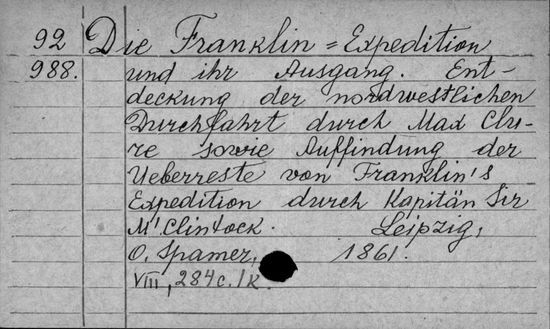 92 Die Franklin=Expedition
988. und ihr Ausgang. Ent-
deckung der nordwestlichen
Durchfahrt durch Mad Clu-
re sowie Auffindung der
Ueberreste von Franklin's
Expedition durch Kapitän Sir
M'Clintock. Leipzig,
O. Spamer, 1861.
VIII, 284 c. /k.